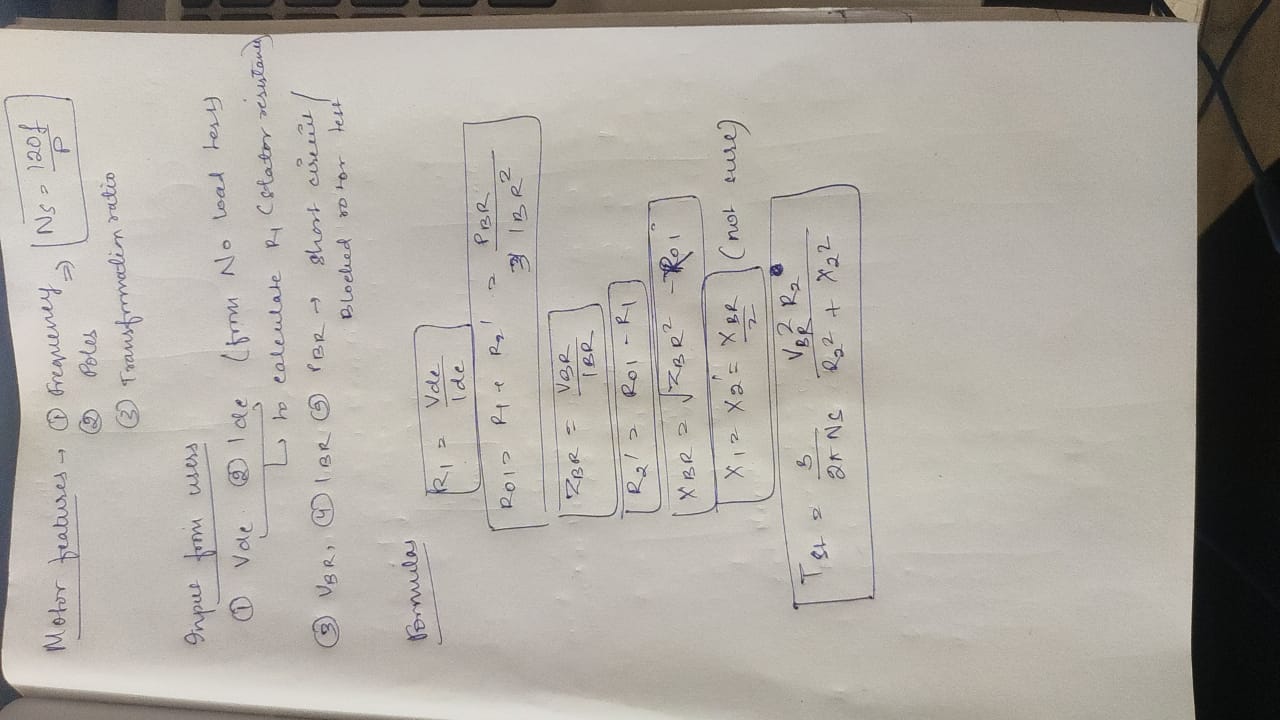 Motor features → ① Frequency ⇒ Ns = 120f / P
② Poles
③ Transformation ratio
Input from users
① Vdc ② Idc (from No load test)
↳ to calculate R1 (stator resistance)
③ VBR, ④ IBR ⑤ PBR → short circuit /
Blocked rotor test
Formulas
R1 = Vdc / Idc
R01 = R1 + R2' = PBR / 3 IBR²
ZBR = VBR / IBR
R2' = R01 - R1
XBR = √ZBR² - R01
X1 = X2' = XBR / 2 (not sure)
Tst = 3 / 2π Ns VBR² R2 / R2² + X2²